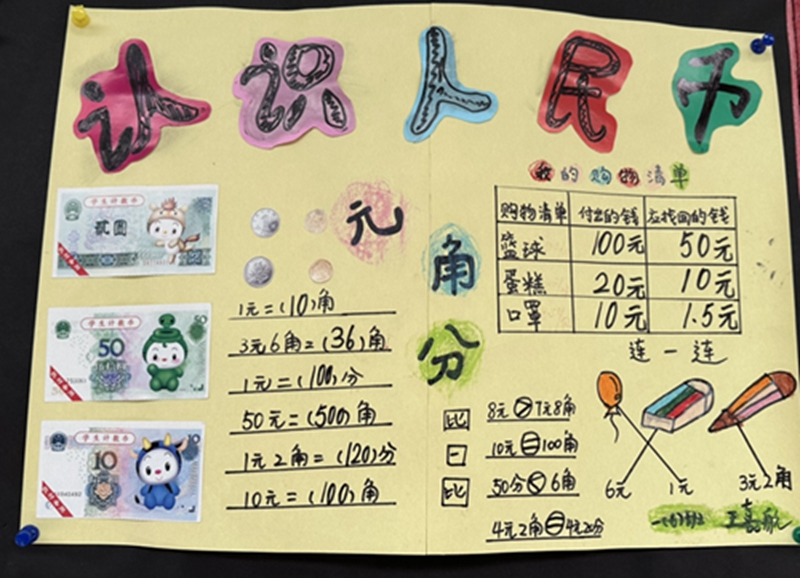 认识人民币
学生计数币
贰圆
学生计数币
50
学生计数币
10
元
角
分
1元=(10)角
3元6角=(36)角
1元=(100)分
50元=(500)角
1元2角=(120)分
10元=(100)角
我的购物清单
购物清单 付出的钱 应找回的钱
篮球 100元 50元
蛋糕 20元 10元
口罩 10元 1.5元
连一连
6元 1元 3元2角
比一比
8元>7元8角
10元=100角
50分<6角
4元2角=4元20分